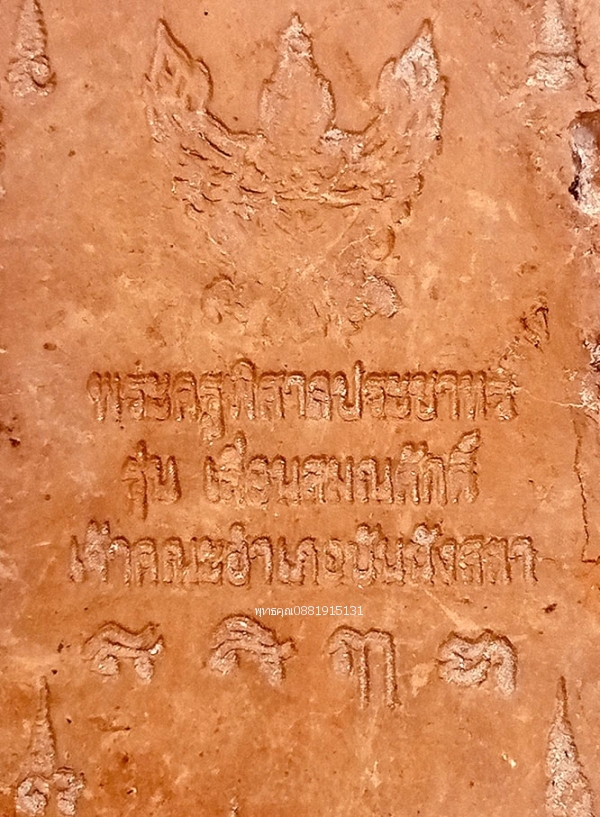 พระครูพิศาลประยาทร
รุ่น เลื่อนสมณศักดิ์
เจ้าคณะอำเภอบันนังสตา
พุทธคุณ0881915131